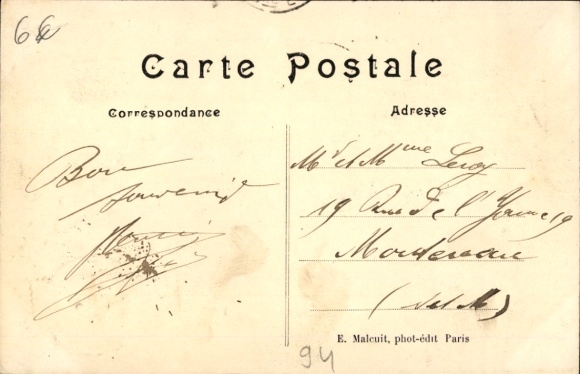 66
Carte Postale
Correspondance
Adresse
Bon
souvenir
Mr et Mme Leroy
19 Rue de l'Yonne 19
Montereau
(S et M)
E. Malcuit, phot-édit Paris
94